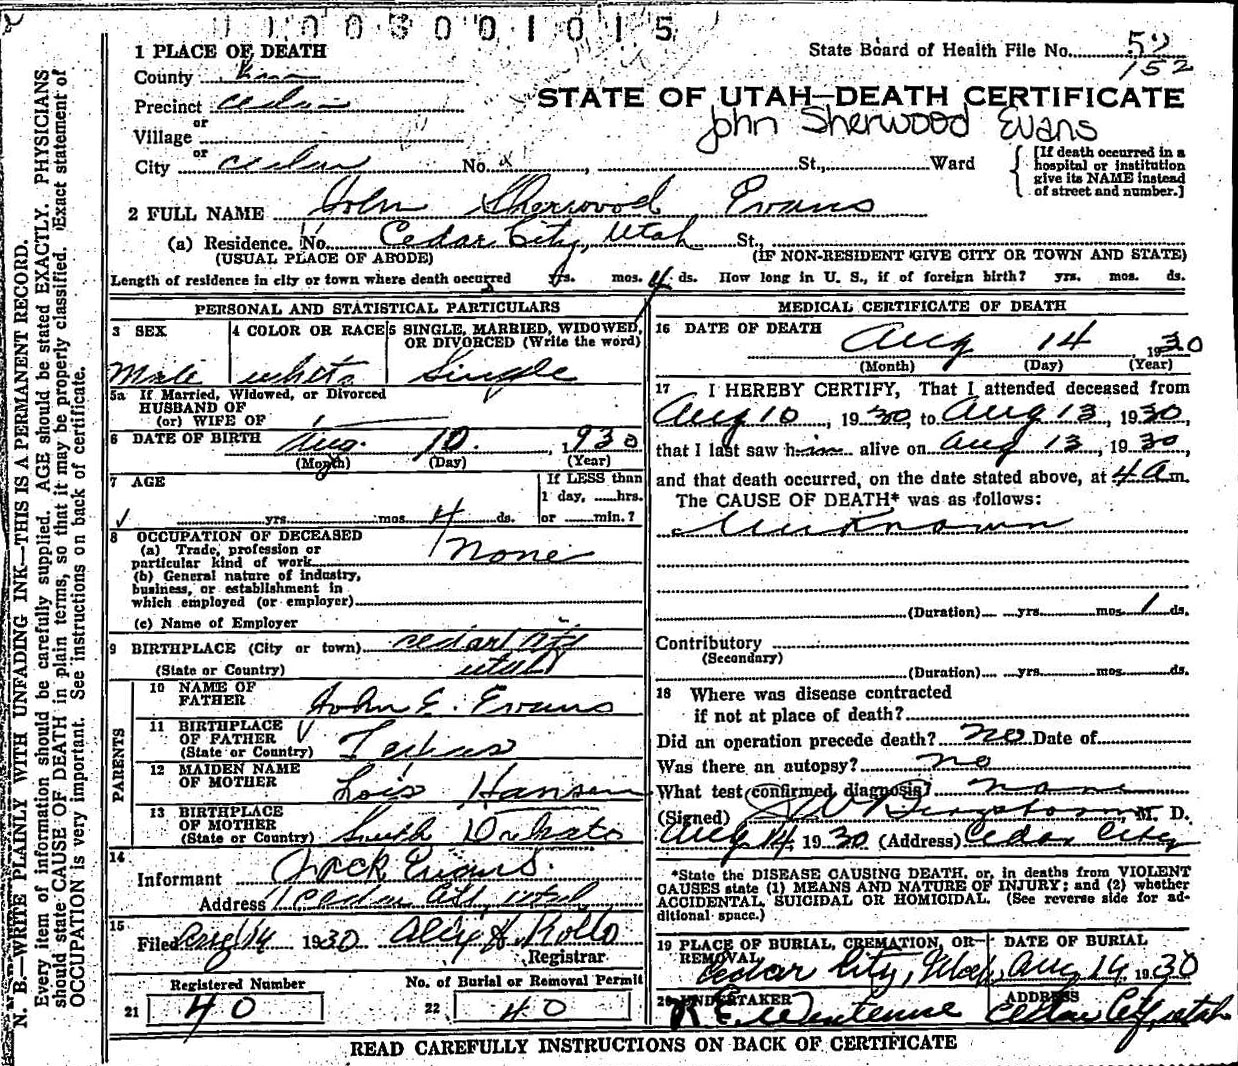 1003001015
1 PLACE OF DEATH
State Board of Health File No. 52
152
County
Precinct Cedar
or
Village
or
City Cedar No. St., Ward
STATE OF UTAH—DEATH CERTIFICATE
John Sherwood Evans
[If death occurred in a hospital or institution give its NAME instead of street and number.]
2 FULL NAME John Sherwood Evans
(a) Residence. No. Cedar City, Utah St.,
(USUAL PLACE OF ABODE) (IF NON-RESIDENT GIVE CITY OR TOWN AND STATE)
Length of residence in city or town where death occurred yrs. mos. 4 ds. How long in U. S., if of foreign birth? yrs. mos. ds.
PERSONAL AND STATISTICAL PARTICULARS
3 SEX 4 COLOR OR RACE 5 SINGLE, MARRIED, WIDOWED, OR DIVORCED (Write the word)
Male white Single
5a If Married, Widowed, or Divorced
HUSBAND OF
(or) WIFE OF
6 DATE OF BIRTH Aug. 10. 1930
(Month) (Day) (Year)
7 AGE If LESS than
1 day, ......hrs.
yrs. mos. 4 ds. or ......min.?
8 OCCUPATION OF DECEASED
(a) Trade, profession or
particular kind of work None
(b) General nature of industry,
business, or establishment in
which employed (or employer)
(c) Name of Employer
9 BIRTHPLACE (City or town) Cedar City
(State or Country) Utah
PARENTS
10 NAME OF FATHER John E. Evans
11 BIRTHPLACE OF FATHER (State or Country) Texas
12 MAIDEN NAME OF MOTHER Lois Hansen
13 BIRTHPLACE OF MOTHER (State or Country) South Dakato
14 Informant Jack Evans.
Address Cedar City, Utah
15 Filed Aug 14 1930
Registrar
Registered Number
21 40
No. of Burial or Removal Permit
22 40
MEDICAL CERTIFICATE OF DEATH
16 DATE OF DEATH Aug 14 1930
(Month) (Day) (Year)
17 I HEREBY CERTIFY, That I attended deceased from
Aug 10, 1930, to Aug 13, 1930,
that I last saw him alive on Aug 13, 1930,
and that death occurred, on the date stated above, at 4 a m.
The CAUSE OF DEATH* was as follows:
Unknown
(Duration) yrs. mos. 1 ds.
Contributory
(Secondary)
(Duration) yrs. mos. ds.
18 Where was disease contracted
if not at place of death?
Did an operation precede death? no Date of
Was there an autopsy? no
What test confirmed diagnosis? none
(Signed) M. D.
Aug 14. 1930 (Address) Cedar City
*State the DISEASE CAUSING DEATH, or, in deaths from VIOLENT
CAUSES state (1) MEANS AND NATURE OF INJURY; and (2) whether
ACCIDENTAL, SUICIDAL OR HOMICIDAL. (See reverse side for ad-
ditional space.)
19 PLACE OF BURIAL, CREMATION, OR REMOVAL DATE OF BURIAL
Cedar City, Utah, Aug 14 1930
20 UNDERTAKER ADDRESS
Cedar City, Utah
READ CAREFULLY INSTRUCTIONS ON BACK OF CERTIFICATE
N. B.—WRITE PLAINLY WITH UNFADING INK—THIS IS A PERMANENT RECORD.
Every item of information should be carefully supplied. AGE should be stated EXACTLY. PHYSICIANS
should state CAUSE OF DEATH in plain terms, so that it may be properly classified. Exact statement of
OCCUPATION is very important. See instructions on back of certificate.